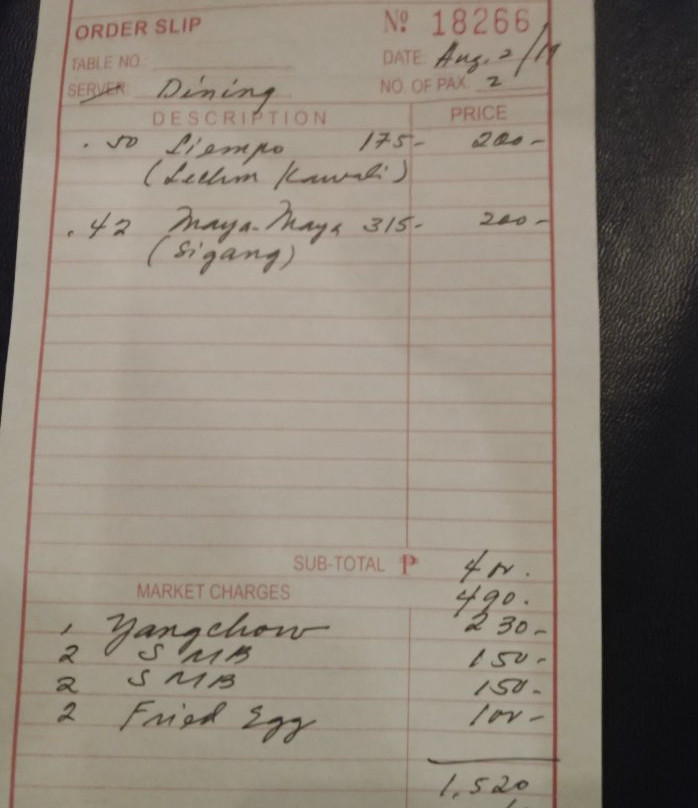 ORDER SLIP Nº 18266
TABLE NO.: DATE: Aug. 2/19
SERVER: Dining NO. OF PAX. 2
DESCRIPTION PRICE
.50 Liempo 175- 200-
(Lechon Kawali)
.42 Maya-Maya 315- 200-
(Sigang)
SUB-TOTAL ₱ 400.
MARKET CHARGES 490.
1 Yangchow 230-
2 SMB 150-
2 SMB 150-
2 Fried Egg 100-
1,520